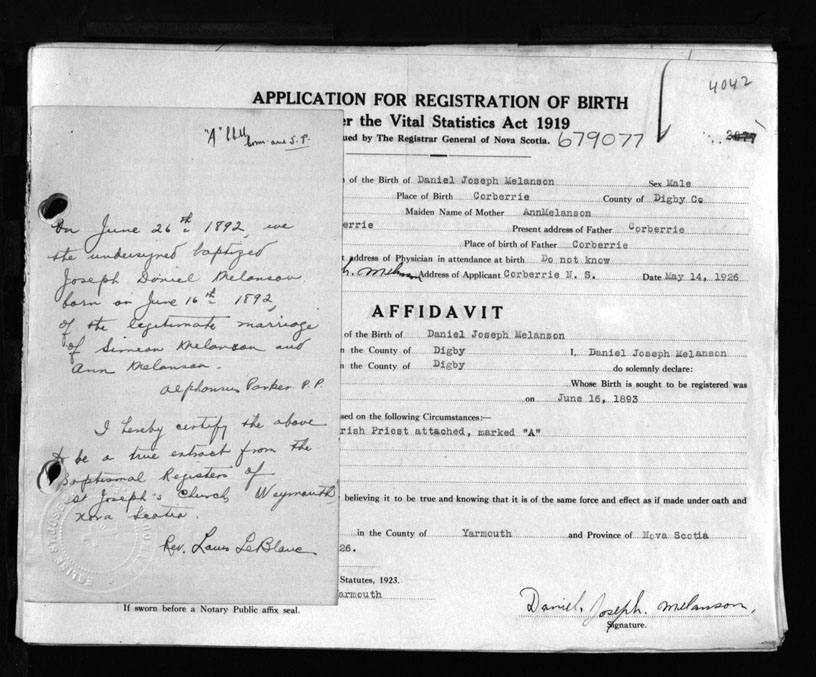 4042
APPLICATION FOR REGISTRATION OF BIRTH
er the Vital Statistics Act 1919
ued by The Registrar General of Nova Scotia. 679077
of the Birth of Daniel Joseph Melanson Sex Male
Place of Birth Corberrie County of Digby Co
Maiden Name of Mother AnnMelanson
errie Present address of Father Corberrie
Place of birth of Father Corberrie
address of Physician in attendance at birth Do not know
h. Melanson Address of Applicant Corberrie N. S. Date May 14, 1926
AFFIDAVIT
of the Birth of Daniel Joseph Melanson
n the County of Digby I, Daniel Joseph Melanson
n the County of Digby do solemnly declare:
Whose Birth is sought to be registered was
on June 16, 1893
sed on the following Circumstances:—
rish Priest attached, marked "A"
believing it to be true and knowing that it is of the same force and effect as if made under oath and
in the County of Yarmouth and Province of Nova Scotia
26.
Statutes, 1923.
armouth
If sworn before a Notary Public affix seal.
Daniel. Joseph. Melanson.
Signature.
"A"
On June 26th 1892, we
the undersigned baptized
Joseph Daniel Melanson
born on June 16th 1892,
of the legitimate marriage
of Simeon Melanson and
Ann Melanson.
Alphonsus Parker P.P.
I hereby certify the above
to be a true extract from the
Baptismal Registers of
St Joseph's Church Weymouth,
Nova Scotia.
Rev. Louis LeBlanc